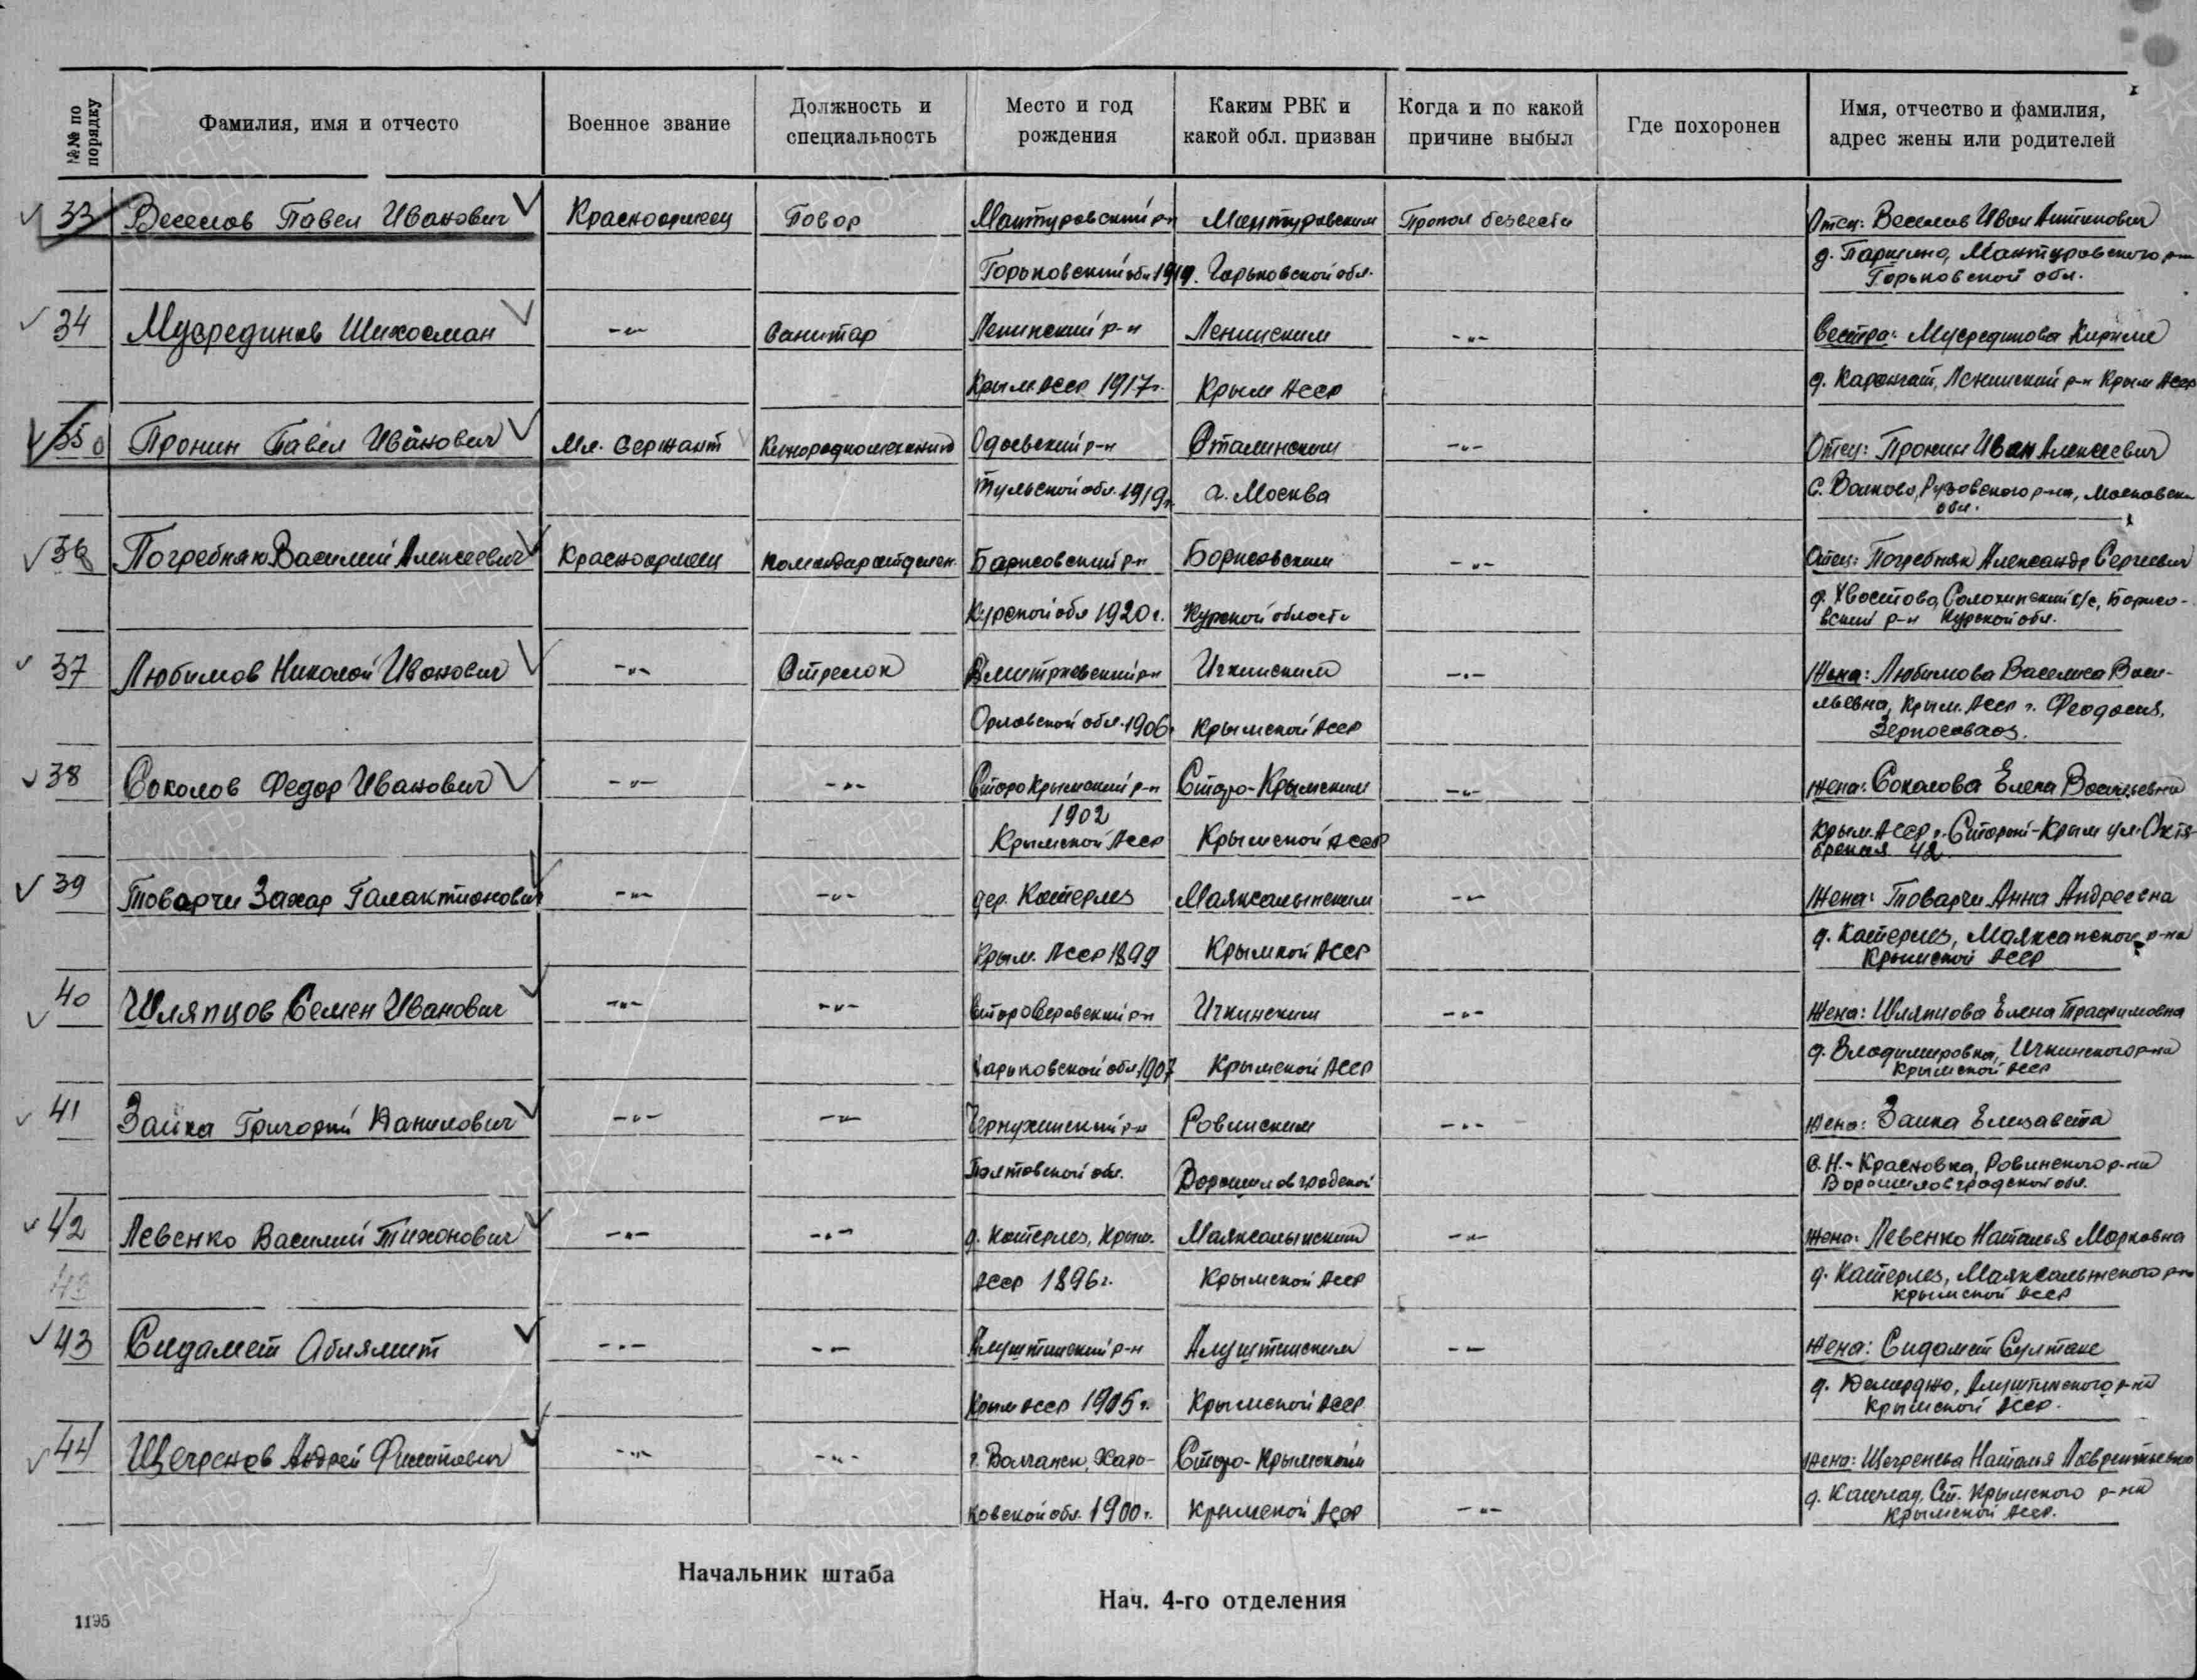 №№ по порядку
Фамилия, имя и отчесто
Военное звание
Должность и специальность
Место и год рождения
Каким РВК и какой обл. призван
Когда и по какой причине выбыл
Где похоронен
Имя, отчество и фамилия, адрес жены или родителей
33 Веселов Павел Иванович Красноармеец Повор Мантуровский р-н Мантуровским Пропал безвести Отец: Веселов Иван
Горьковский обл 1919. Горьковской обл. д. Мантуровского р-на
Горьковской обл.
34 Мусрединов Шихосман -"- Санитар Ленинский р-н Ленинским -"- Сестра: Мусрединова
Крым АССР 1917г. Крым АССР д. Ленинский р-н Крым АССР
35 Пронин Павел Иванович Мл. Сержант Одоевский р-н Сталинским -"- Отец: Пронин Иван Алексеевич
Тульской обл. 1919г. г. Москва с. Волково, Рузовского р-на, Московск
обл.
36 Погребняк Василий Алексеевич Красноармеец Командир отделен. Борисовский р-н Борисовским -"- Отец: Погребняк Александр Сергеевич
Курской обл 1920г. Курской области д. Хвостово, с/с, Борисо-
вский р-н Курской обл.
37 Любимов Николай Иванович -"- Стрелок Дмитриевский р-н Ичкинским -"- Жена: Любимова Васелиса Васи-
Орловской обл. 1906г Крымской АССР льевна, Крым. АССР г. Феодосия,
38 Соколов Федор Иванович -"- -"- Старо Крымский р-н Старо-Крымским -"- Жена: Соколова Елена Васильевна
1902
Крымской АССР Крымской АССР Крым. АССР г. Старый-Крым ул. Октя-
брьская 42
39 Товарчи Захар Галактионович -"- -"- дер. Катерлез Маяксалынским -"- Жена: Товарчи Анна Андреевна
Крым. АССР 1899 Крымкой АССР д. Катерлез, Маяксапского р-на
Крымской АССР
40 Шляпцов Семен Иванович -"- -"- Ичкинским -"- Жена: Шляпцова Елена Трафимовна
Харьковской обл 1907 Крымской АССР д. Владимировка, Ичкинского р-на
Крымской АССР
41 Заика Григорий Данилович -"- -"- Чернухинский р-н Ровинским -"- Жена: Заика Елизавета
Полтовской обл. Ворошиловградской с. Н.-Красновка, Ровинского р-на
Ворошиловградской обл.
42 Левенко Василий Тихонович -"- -"- д. Катерлез, Крым. Маяксалынским -"- Жена: Левенко Наталья Марковна
АССР 1896г. Крымской АССР д. Катерлез, Маяксалынского р-на
Крымской АССР
43 Сидамет Аблямит -"- -"- Алуштинский р-н Алуштинским -"- Жена: Сидамет Султане
Крым АССР 1905г. Крымской АССР д. Демерджо, Алуштинского р-на
Крымской АССР.
44 Щегренов Андрей Филипович -"- -"- г. Волчанск, Харь- Старо-Крымским Жена: Щегренева Наталья Лаврентьевна
ковской обл. 1900г. Крымской АССР -"- д. Ст. Крымского р-на
Крымской АССР.
Начальник штаба
Нач. 4-го отделения
1195
ПАМЯТЬ НАРОДА